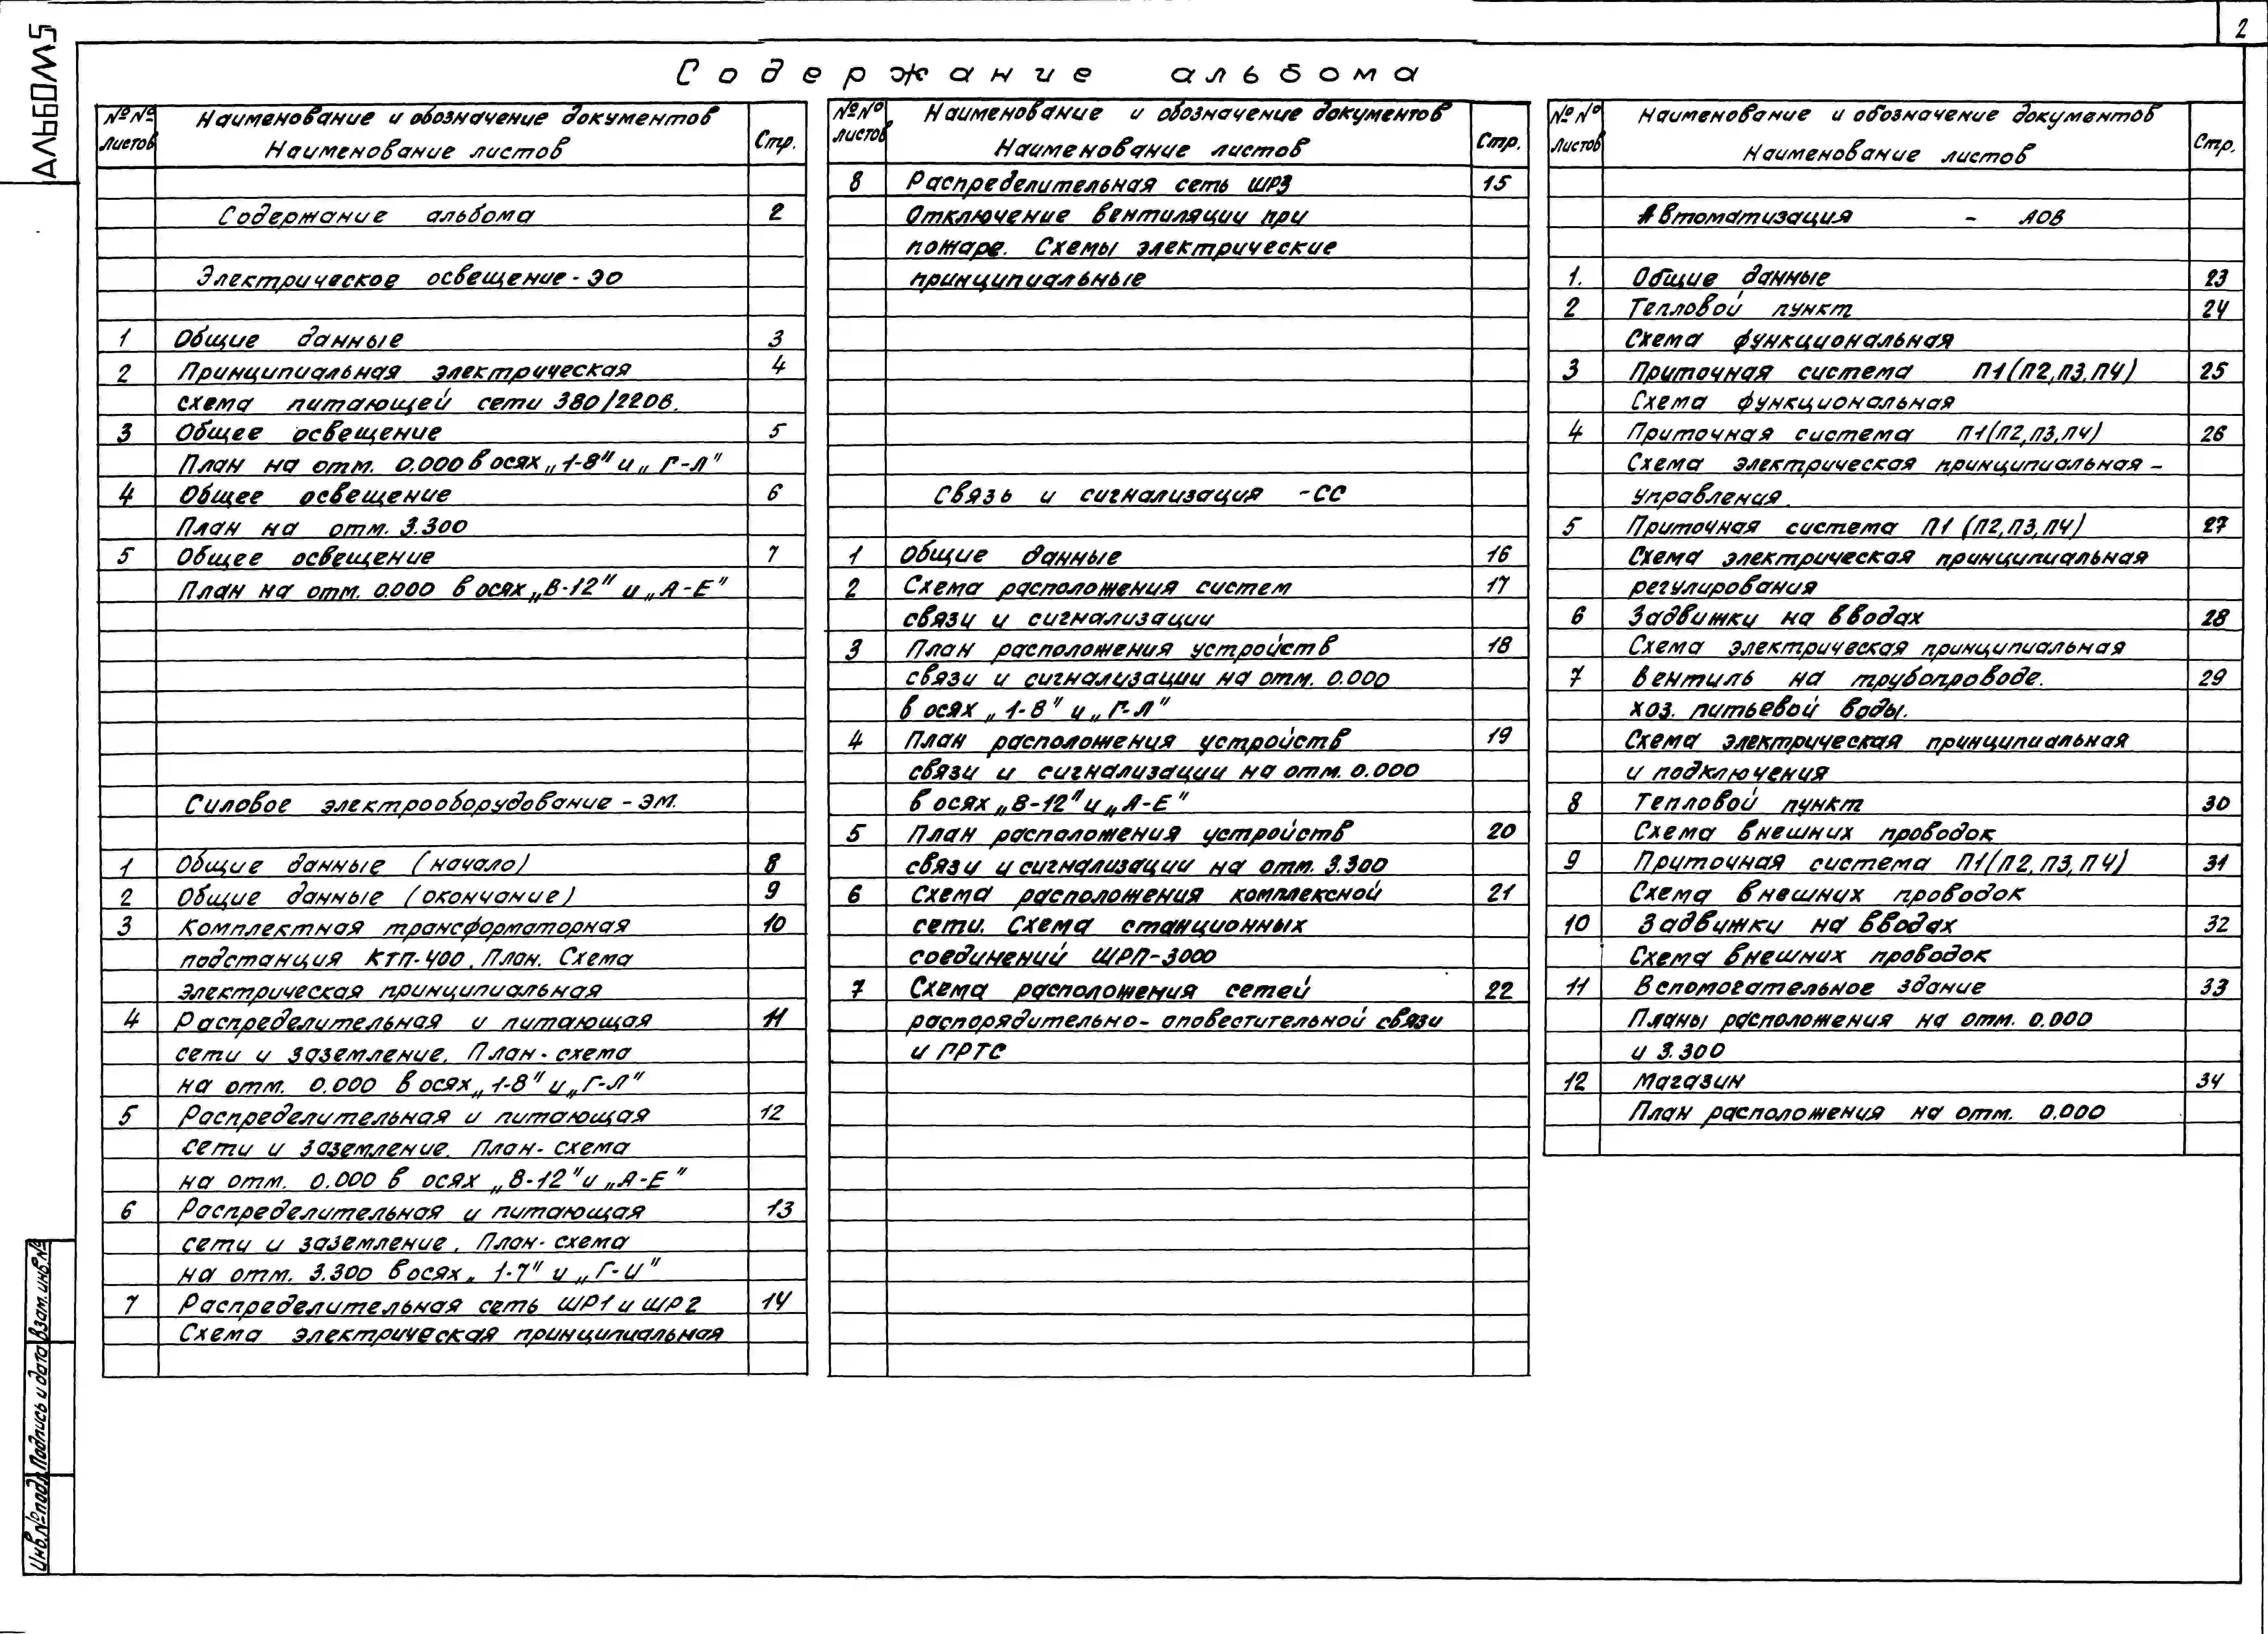 2
АЛЬБОМ 5
Содержание альбома
№№ листов
Наименование и обозначение документов
Наименование листов
Стр.
Содержание альбома 2
Электрическое освещение - ЭО
1 Общие данные 3
2 Принципиальная электрическая 4
схема питающей сети 380/220в.
3 Общее освещение 5
План на отм. 0.000 в осях „1-8" и „Г-Л"
4 Общее освещение 6
План на отм. 3.300
5 Общее освещение 7
План на отм. 0.000 в осях „8-12" и „А-Е"
Силовое электрооборудование - ЭМ.
1 Общие данные (начало) 8
2 Общие данные (окончание) 9
3 Комплектная трансформаторная 10
подстанция КТП-400. План. Схема
электрическая принципиальная
4 Распределительная и питающая 11
сети и заземление. План-схема
на отм. 0.000 в осях „1-8" и „Г-Л"
5 Распределительная и питающая 12
сети и заземление. План-схема
на отм. 0.000 в осях „8-12" и „А-Е"
6 Распределительная и питающая 13
сети и заземление. План-схема
на отм. 3.300 в осях „1-7" и „Г-И"
7 Распределительная сеть ШР1 и ШР2 14
Схема электрическая принципиальная
№№ листов
Наименование и обозначение документов
Наименование листов
Стр.
8 Распределительная сеть ШР3 15
Отключение вентиляции при
пожаре. Схемы электрические
принципиальные
Связь и сигнализация - СС
1 Общие данные 16
2 Схема расположения систем 17
связи и сигнализации
3 План расположения устройств 18
связи и сигнализации на отм. 0.000
в осях „1-8" и „Г-Л"
4 План расположения устройств 19
связи и сигнализации на отм. 0.000
в осях „8-12" и „А-Е"
5 План расположения устройств 20
связи и сигнализации на отм. 3.300
6 Схема расположения комплексной 21
сети. Схема станционных
соединений ШРП-3000
7 Схема расположения сетей 22
распорядительно-оповестительной связи
и ПРТС
№№ листов
Наименование и обозначение документов
Наименование листов
Стр.
Автоматизация - АОВ
1. Общие данные 23
2 Тепловой пункт 24
Схема функциональная
3 Приточная система П1(П2,П3,П4) 25
Схема функциональная
4 Приточная система П1(П2,П3,П4) 26
Схема электрическая принципиальная -
управления.
5 Приточная система П1 (П2,П3,П4) 27
Схема электрическая принципиальная
регулирования
6 Задвижки на вводах 28
Схема электрическая принципиальная
7 Вентиль на трубопроводе. 29
хоз. питьевой воды.
Схема электрическая принципиальная
и подключения
8 Тепловой пункт 30
Схема внешних проводок
9 Приточная система П1(П2,П3,П4) 31
Схема внешних проводок
10 Задвижки на вводах 32
Схема внешних проводок
11 Вспомогательное здание 33
Планы расположения на отм. 0.000
и 3.300
12 Магазин 34
План расположения на отм. 0.000
Взам. инв.№
Подпись и дата
Инв.№ подл.